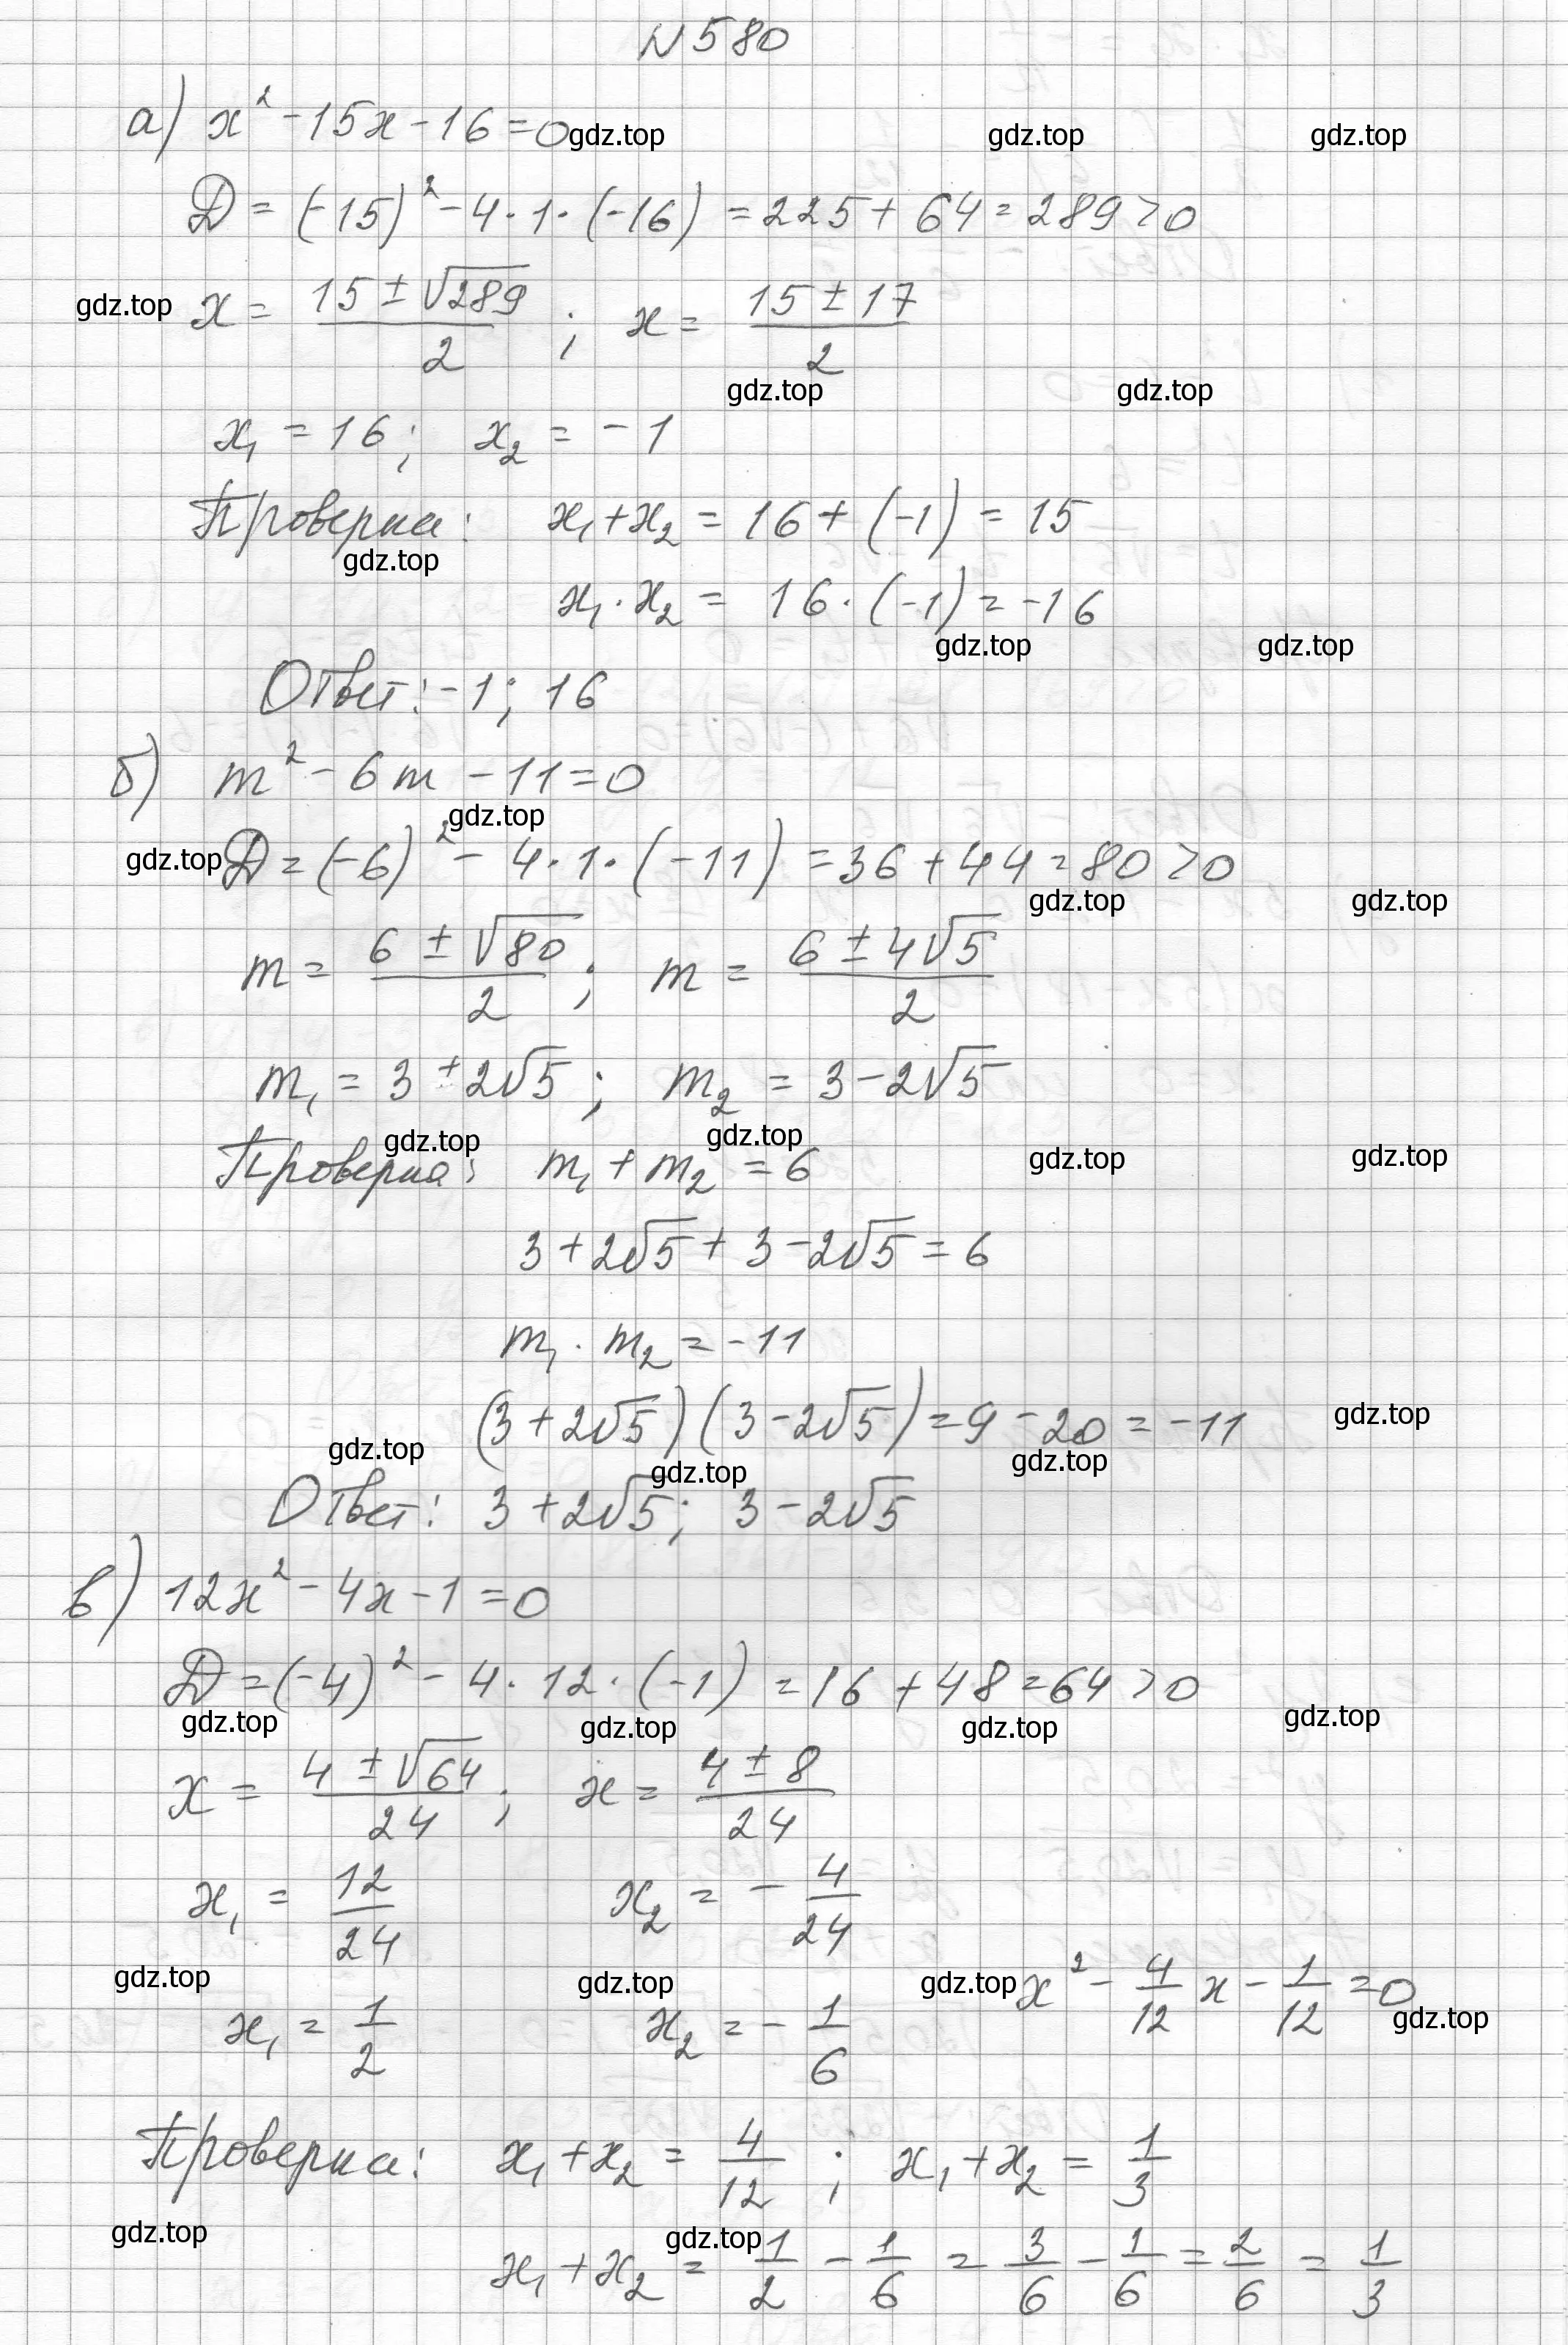 N 580
а) x² - 15x - 16 = 0 gdz.top gdz.top gdz.top
D = (-15)² - 4·1·(-16) = 225 + 64 = 289 > 0
gdz.top x = (15 ± √289)/2 ; x = (15 ± 17)/2
gdz.top gdz.top
x₁ = 16; x₂ = -1
Проверка: x₁ + x₂ = 16 + (-1) = 15
gdz.top
x₁ · x₂ = 16 · (-1) = -16
gdz.top gdz.top
Ответ: -1; 16
б) m² - 6m - 11 = 0
gdz.top
gdz.top D = (-6)² - 4·1·(-11) = 36 + 44 = 80 > 0
gdz.top gdz.top
m = (6 ± √80)/2 ; m = (6 ± 4√5)/2
m₁ = 3 ± 2√5 ; m₂ = 3 - 2√5
gdz.top gdz.top
Проверка: m₁ + m₂ = 6 gdz.top gdz.top
3 + 2√5 + 3 - 2√5 = 6
m₁ · m₂ = -11
(3 + 2√5)(3 - 2√5) = 9 - 20 = -11 gdz.top
gdz.top gdz.top gdz.top
Ответ: 3 + 2√5; 3 - 2√5
в) 12x² - 4x - 1 = 0
D = (-4)² - 4·12·(-1) = 16 + 48 = 64 > 0
gdz.top gdz.top gdz.top gdz.top
x = (4 ± √64)/24 ; x = (4 ± 8)/24
x₁ = 12/24 x₂ = - 4/24
gdz.top gdz.top gdz.top x² - 4/12 x - 1/12 = 0 gdz.top
x₁ = 1/2 x₂ = - 1/6
Проверка: x₁ + x₂ = 4/12 ; x₁ + x₂ = 1/3
gdz.top gdz.top
x₁ + x₂ = 1/2 - 1/6 = 3/6 - 1/6 = 2/6 = 1/3